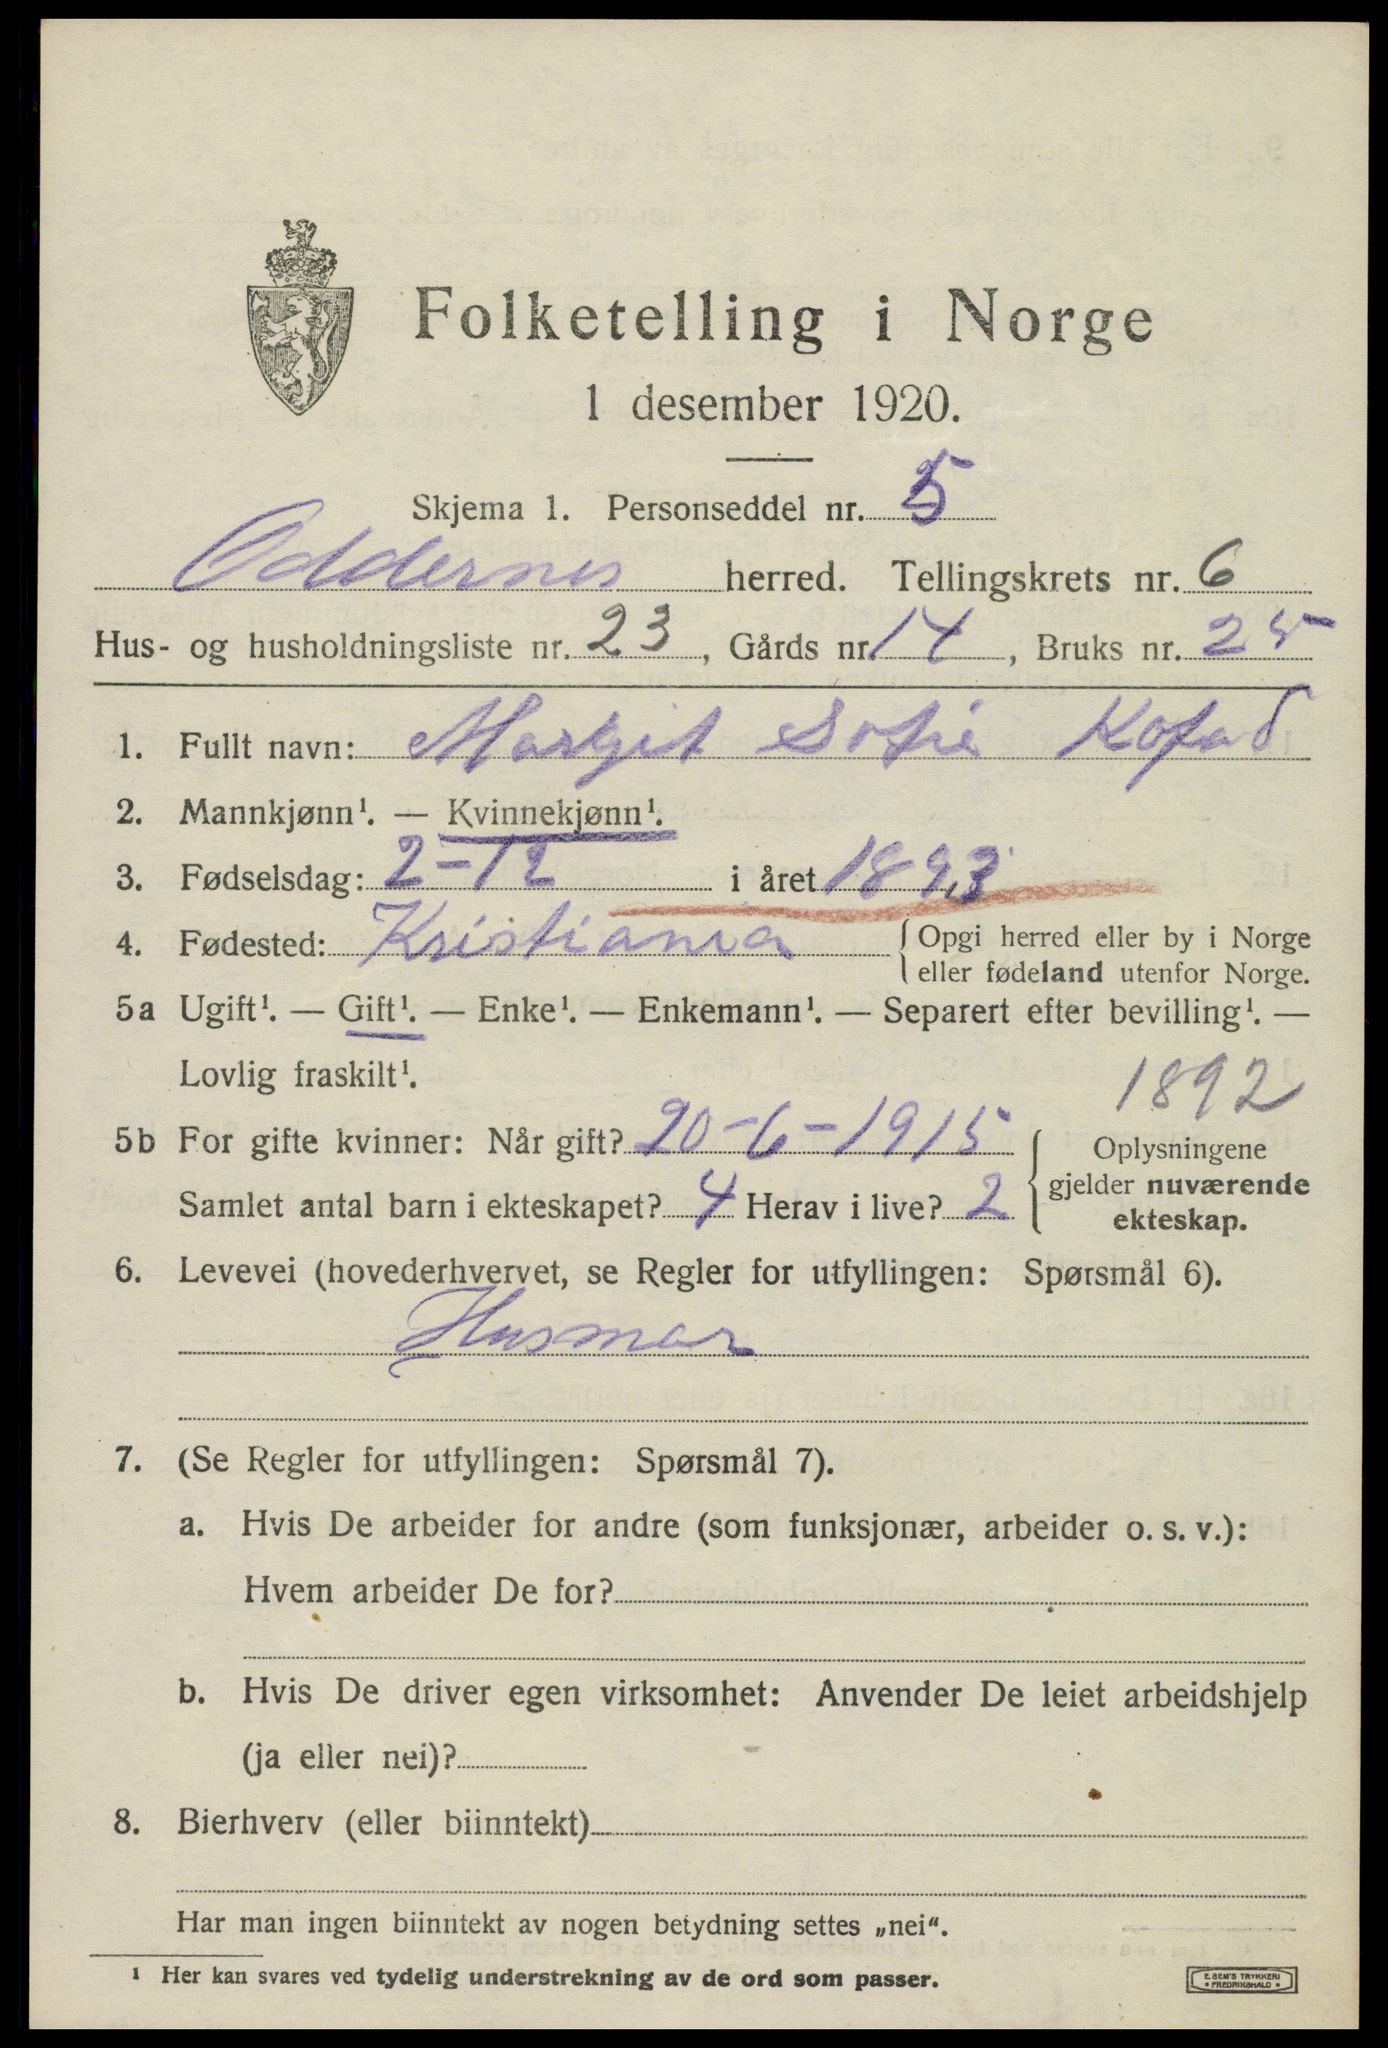 Folketelling i Norge
1 desember 1920.
Skjema 1. Personseddel nr. 5
Oddernes herred. Tellingskrets nr. 6
Hus- og husholdningsliste nr. 23, Gårds nr. 14, Bruks nr. 25
1. Fullt navn: Margit Sofie Kofod
2. Mannkjønn¹. — Kvinnekjønn¹.
3. Fødselsdag: 2-12 i året 1893
4. Fødested: Kristiania { Opgi herred eller by i Norge
eller fødeland utenfor Norge.
5a Ugift¹. — Gift¹. — Enke¹. — Enkemann¹. — Separert efter bevilling¹. —
Lovlig fraskilt¹.
1892
5b For gifte kvinner: Når gift? 20-6-1915 { Oplysningene
gjelder nuværende
ekteskap.
Samlet antal barn i ekteskapet? 4 Herav i live? 2
6. Levevei (hovederhvervet, se Regler for utfyllingen: Spørsmål 6).
Husmor
7. (Se Regler for utfyllingen: Spørsmål 7).
a. Hvis De arbeider for andre (som funksjonær, arbeider o. s. v.):
Hvem arbeider De for?
b. Hvis De driver egen virksomhet: Anvender De leiet arbeidshjelp
(ja eller nei)?
8. Bierhverv (eller biinntekt)
Har man ingen biinntekt av nogen betydning settes „nei“.
¹ Her kan svares ved tydelig understrekning av de ord som passer.
E. SEM'S TRYKKERI
• FREDRIKSHALD •